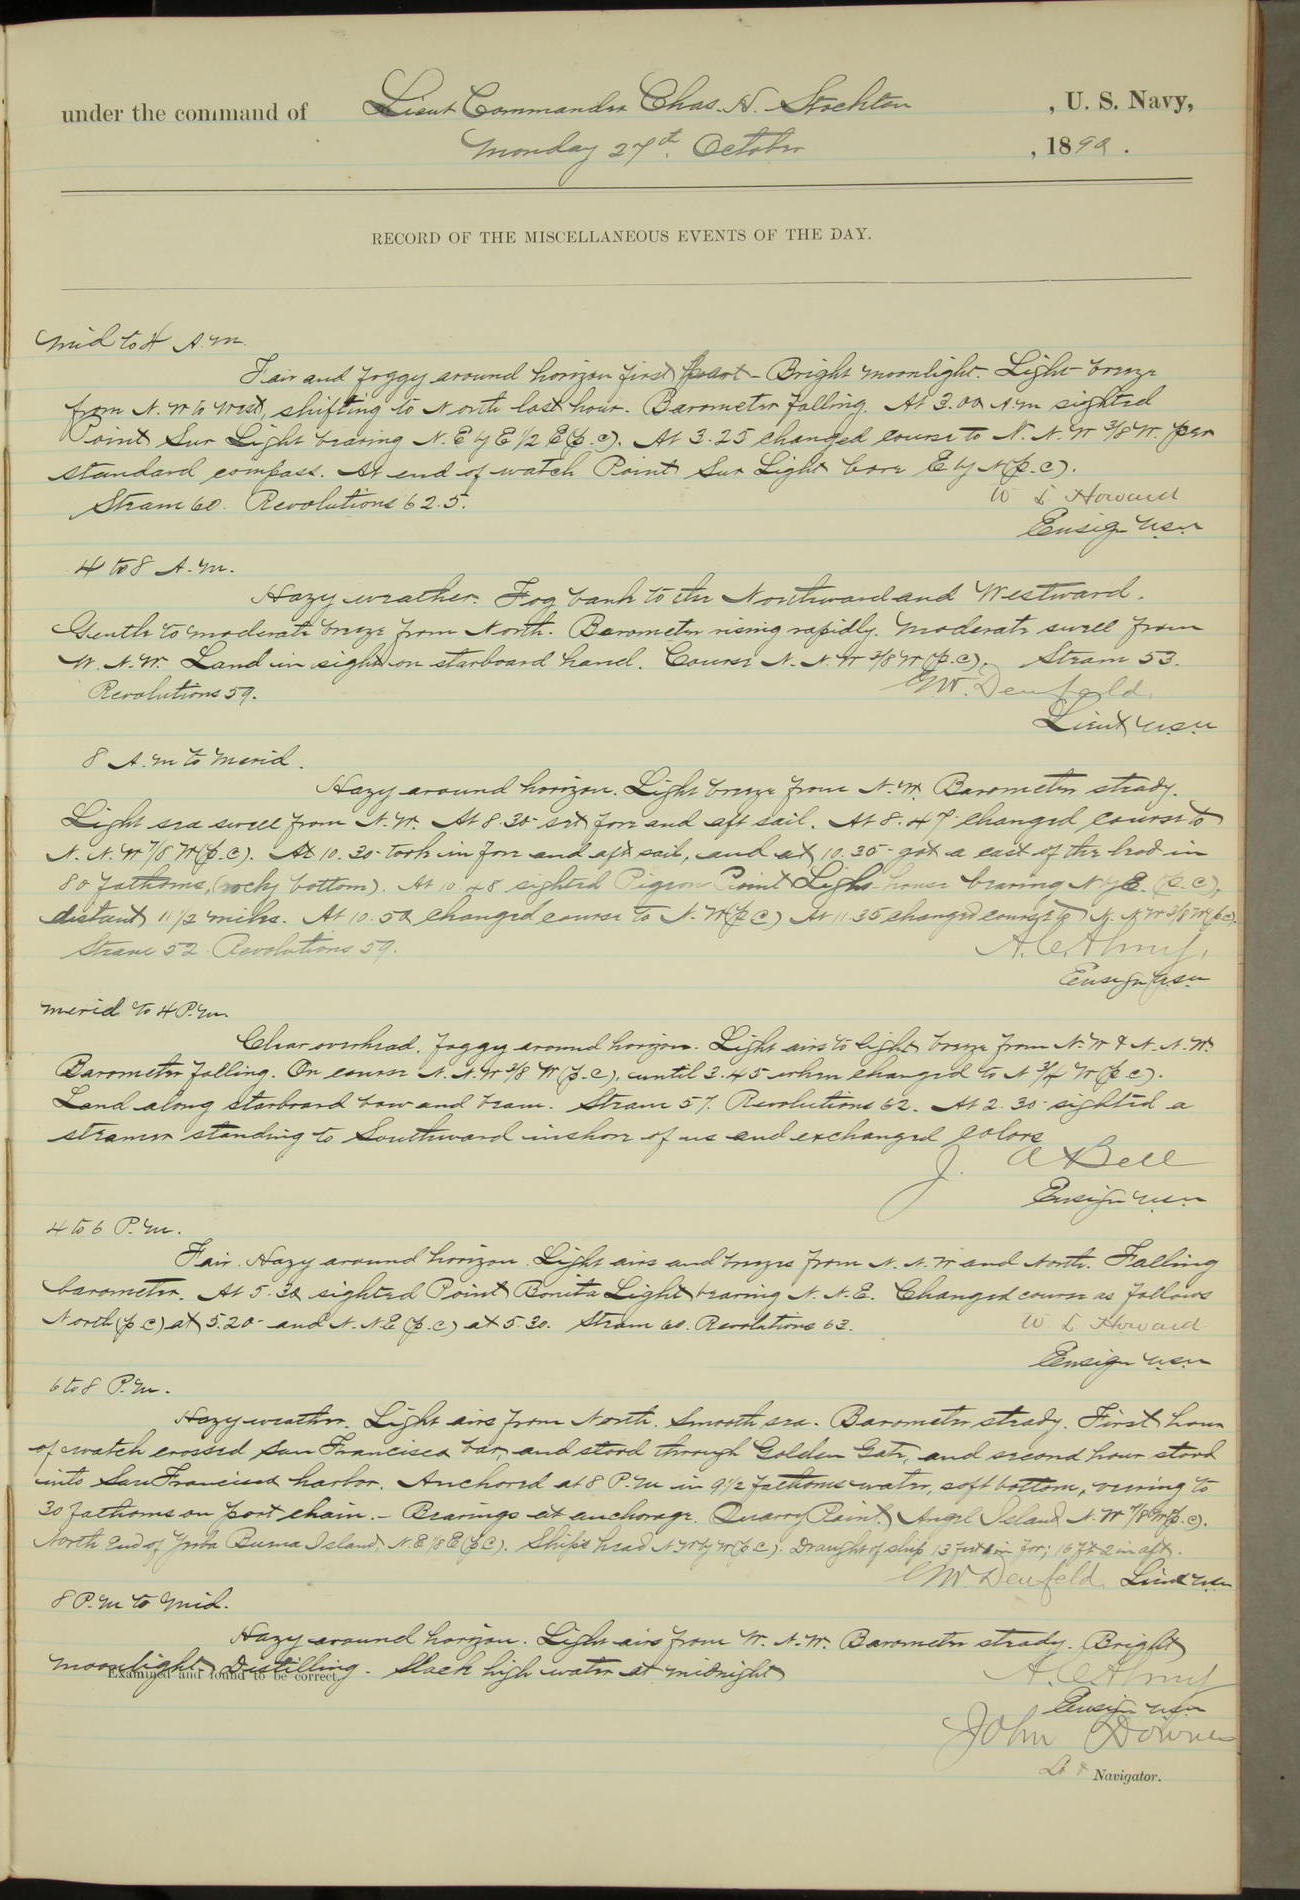 under the command of Lieut Commander Chas. H. Stockton, U. S. Navy,
Monday 27th October, 1890.
RECORD OF THE MISCELLANEOUS EVENTS OF THE DAY.
Mid to 4 A.M.
Fair and foggy around horizon first part - Bright moonlight. Light breeze
from N.W to West, shifting to North last hour. Barometer falling. At 3.00 A.m sighted
Point Sur Light bearing N.E by E 1/2 E (p.c). At 3.25 changed course to N.N.W 3/8 W. per
standard compass. At end of watch Point Sur Light bore E by N (p.c).
Steam 60. Revolutions 62.5.
W L Howard
Ensign USN
4 to 8 A.M.
Hazy weather. Fog bank to the Northward and Westward.
Gentle to moderate breeze from North. Barometer rising rapidly. Moderate swell from
W.N.W. Land in sight on starboard hand. Course N.N.W 3/8 W (p.c). Steam 53.
Revolutions 59.
Denfeld.
Lieut USN
8 A.M to Merid.
Hazy around horizon. Light breeze from N.W. Barometer steady.
Light sea swell from N.W. At 8.30 set fore and aft sail. At 8.47 changed course to
N.N.W 7/8 W (p.c). At 10.30 took in fore and aft sail, and at 10.35 got a cast of the lead in
80 fathoms, (rocky bottom). At 10.48 sighted Pigeon Point Light-house bearing N by E. (p.c),
distant 11 1/2 miles. At 10.50 changed course to N.W (p c) At 11 35 changed course to N. N W 3/8 W (p c).
Steam 52 Revolutions 59.
A. C. Almy,
Ensign USN
Merid to 4 P.M.
Clear overhead, foggy around horizon. Light airs to light breeze from N.W & N.N.W.
Barometer falling. On course N.N.W 3/8 W (p.c), until 3.45 when changed to N 3/4 W (p c).
Land along starboard bow and beam. Steam 57. Revolutions 62. At 2.30 sighted a
steamer standing to Southward inshore of us and exchanged colors
J. A Bell
Ensign USN
4 to 6 P.M.
Fair. Hazy around horizon. Light airs and breezes from N.N.W and North. Falling
barometer. At 5.30 sighted Point Bonita Light bearing N.N.E. Changed course as follows
North (p c) at 5.20 and N.NE (p.c) at 5 30. Steam 60. Revolutions 63.
W L Howard
Ensign USN
6 to 8 P.M.
Hazy weather. Light airs from North. Smooth sea. Barometer steady. First hour
of watch crossed San Francisco bar, and stood through Golden Gate, and second hour stood
into San Francisco harbor. Anchored at 8 P.M in 9 1/2 fathoms water, soft bottom, veering to
30 fathoms on port chain. - Bearings at anchorage. Quarry Point, Angel Island N.W 7/8 W (p.c).
North End of Yerba Buena Island, N.E 1/8 E (p.C). Ship's head N W by W (p C). Draught of ship 13 feet in for; 16 ft 2 in aft.
Denfeld, Lieut USN
8 P.M to Mid.
Hazy around horizon. Light airs from W.N.W. Barometer steady. Bright
moonlight. Distilling. Slack high water at midnight
Examined and found to be correct.
A. C. Almy
Ensign USN
John Downes
Lt & Navigator.